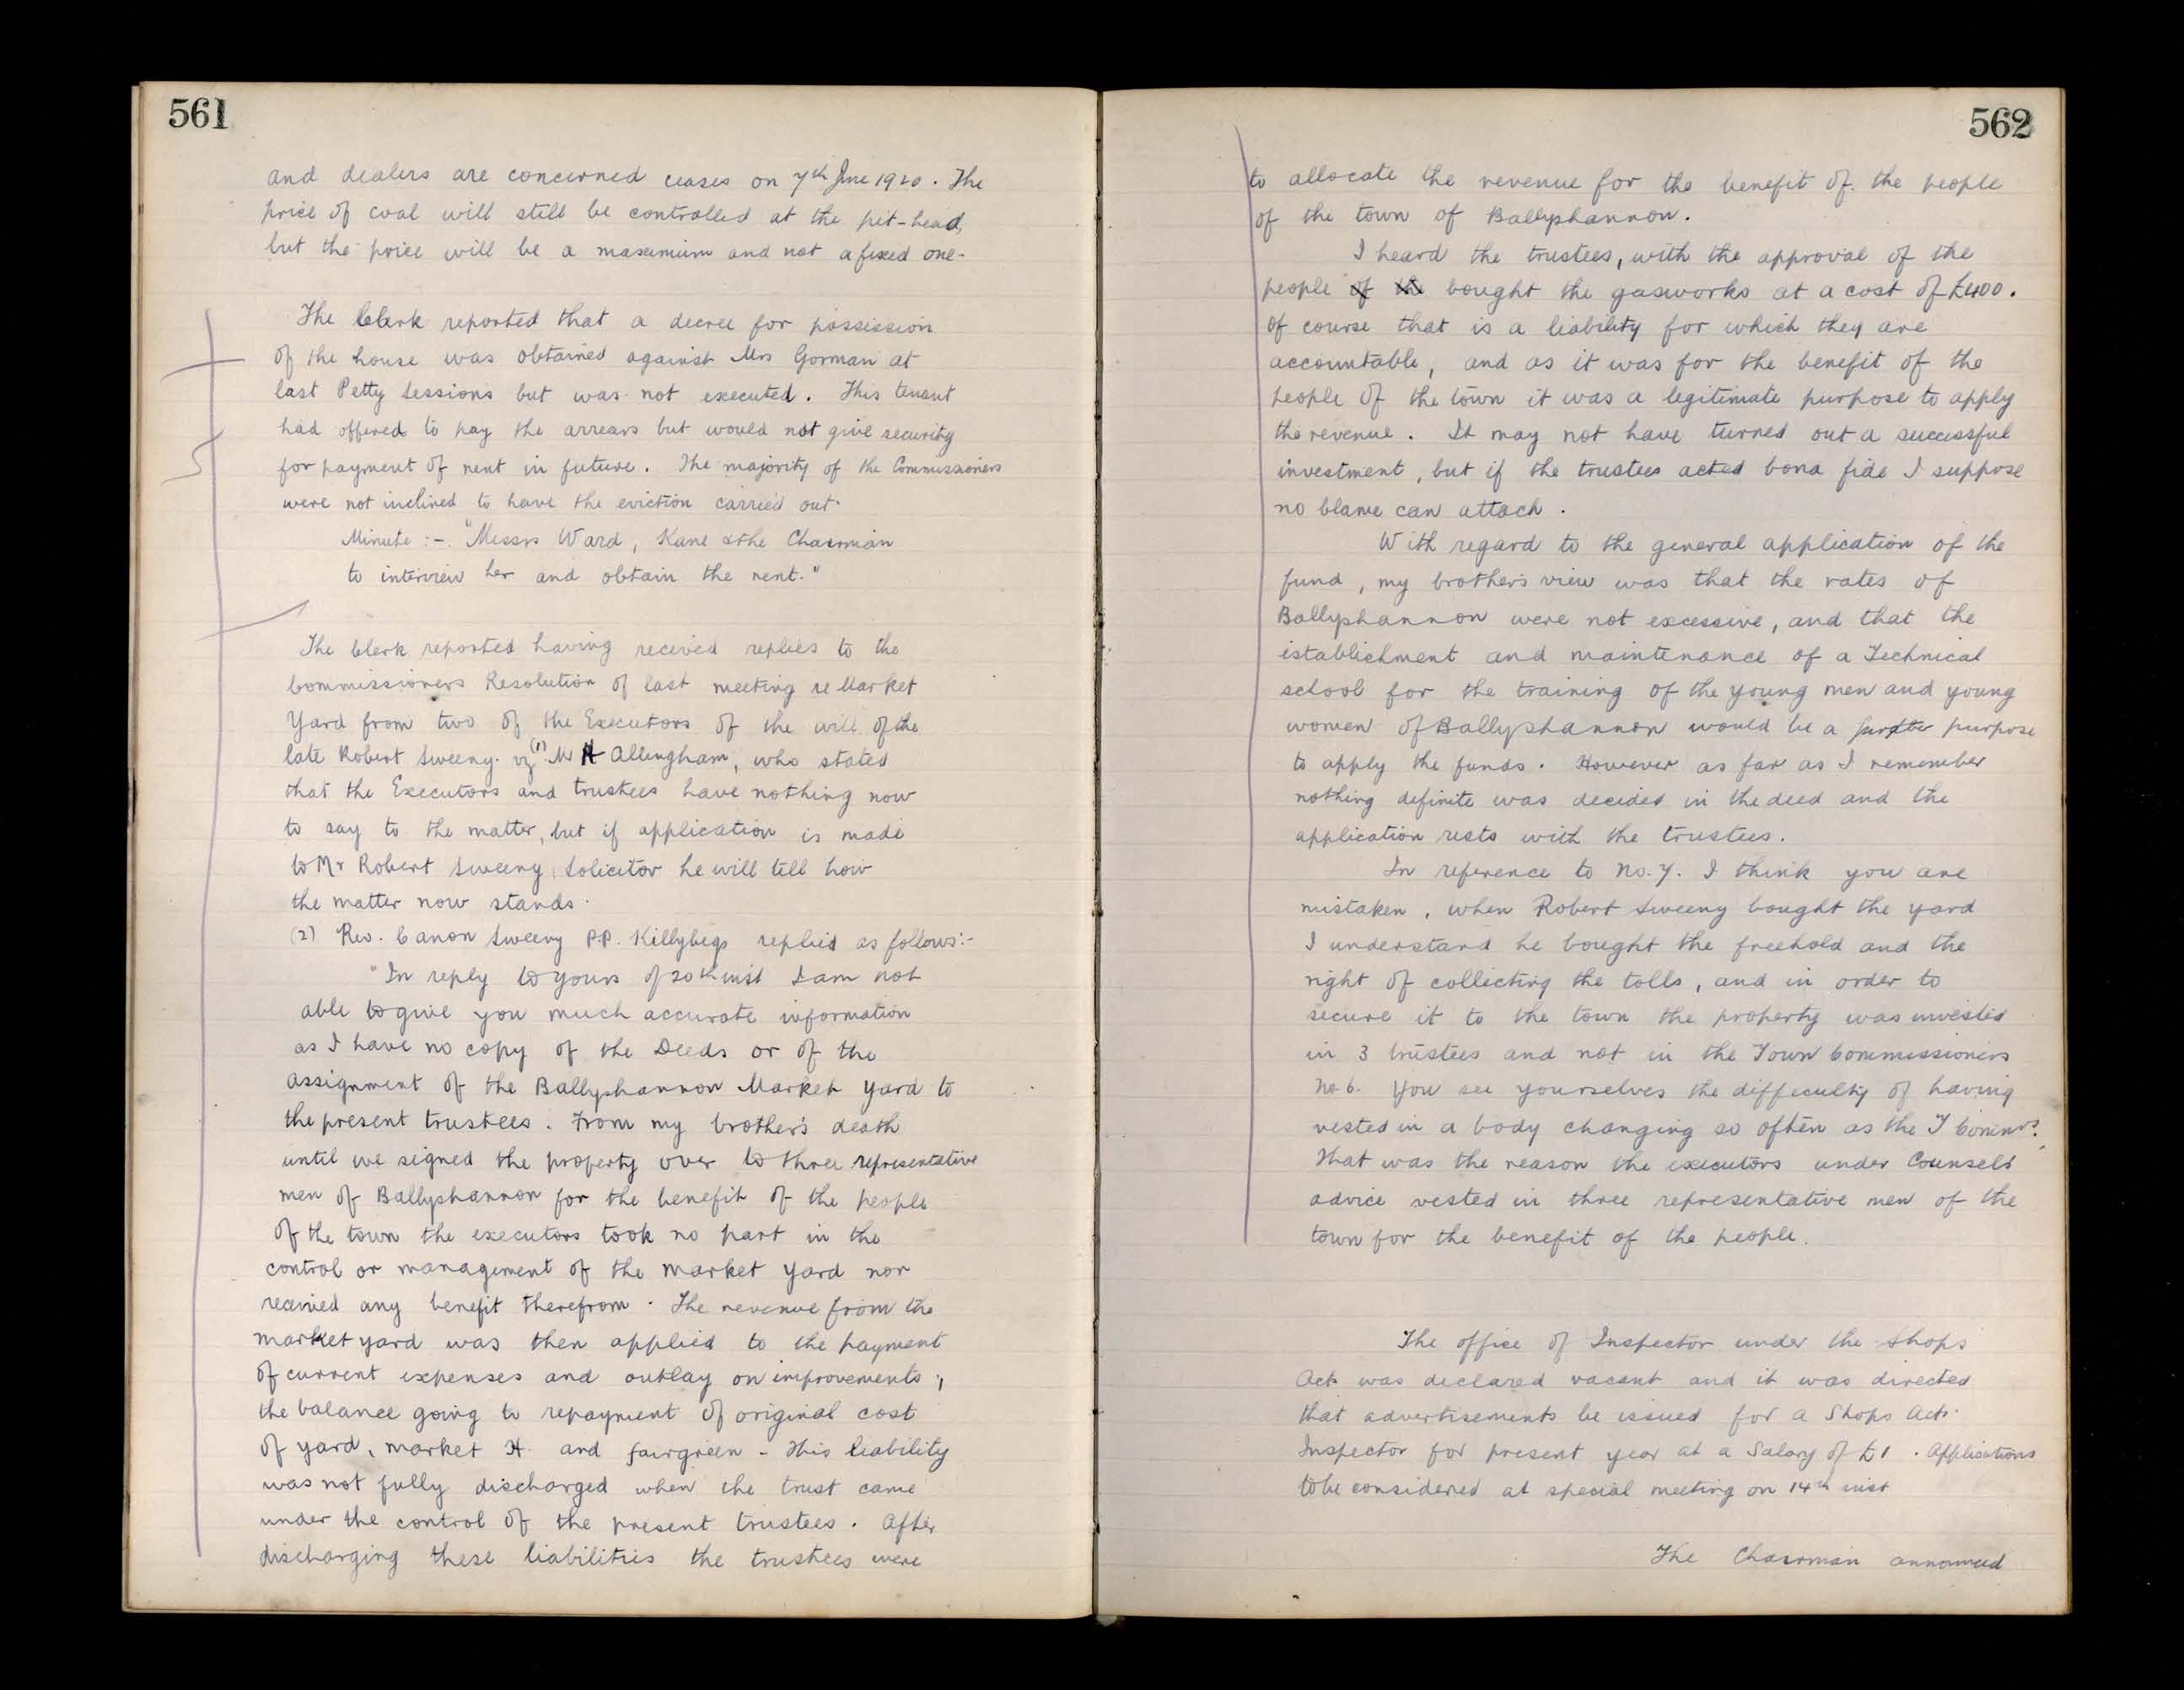 561
and dealers are concerned ceases on 7th June 1920. The
price of coal will still be controlled at the pit-head,
but the price will be a maximium and not a fixed one-
The Clerk reported that a decree for possession
of the house was obtained against Mrs Gorman at
last Petty Sessions but was not executed. This tenant
had offered to pay the arrears but would not give security
for payment of rent in future. The majority of the Commissioners
were not inclined to have the eviction carried out.
Minute :- "Messrs Ward, Kane & the Chairman
to interview her and obtain the rent."
The Clerk reported having received replies to the
Commissioners Resolution of last meeting re Market
Yard from two of the Executors of the will of the
late Robert Sweeny. viz (1) Mr H Allingham, who stated
that the Executors and trustees have nothing now
to say to the matter, but if application is made
to Mr Robert Sweeny, Solicitor he will tell how
the matter now stands.
(2) Rev. Canon Sweeny P.P. Killybegs replied as follows:-
"In reply to yours of 20th inst I am not
able to give you much accurate information
as I have no copy of the Deeds or of the
assignment of the Ballyshannon Market Yard to
the present trustees. From my brother's death
until we signed the property over to three representative
men of Ballyshannon for the benefit of the people
of the town the executors took no part in the
control or management of the market yard nor
received any benefit therefrom. The revenue from the
market yard was then applied to the payment
of current expenses and outlay on improvements,
the balance going to repayment of original cost
of yard, market H. and fairgreen - This liability
was not fully discharged when the trust came
under the control of the present trustees. After
discharging these liabilities the trustees were
562
to allocate the revenue for the benefit of the people
of the town of Ballyshannon.
I heard the trustees, with the approval of the
people of the bought the gasworks at a cost of £400.
Of course that is a liability for which they are
accountable, and as it was for the benefit of the
people of the town it was a legitimate purpose to apply
the revenue. It may not have turned out a successful
investment, but if the trustees acted bona fide I suppose
no blame can attach.
With regard to the general application of the
fund, my brother's view was that the rates of
Ballyshannon were not excessive, and that the
establishment and maintenance of a Technical
school for the training of the young men and young
women of Ballyshannon would be a purpose
to apply the funds. However as far as I remember
nothing definite was decided in the deed and the
application rests with the trustees.
In reference to No. 7. I think you are
mistaken, when Robert Sweeny bought the yard
I understand he bought the freehold and the
right of collecting the tolls, and in order to
secure it to the town the property was invested
in 3 trustees and not in the Town Commissioners
No. 6. You see yourselves the difficulty of having
vested in a body changing so often as the T Commrs.
That was the reason the executors under Counsels
advice vested in three representative men of the
town for the benefit of the people.
The office of Inspector under the Shops
Acts was declared vacant and it was directed
that advertisements be issued for a Shops Acts
Inspector for present year at a Salary of £1. Applications
to be considered at special meeting on 14th inst
The Chairman announced